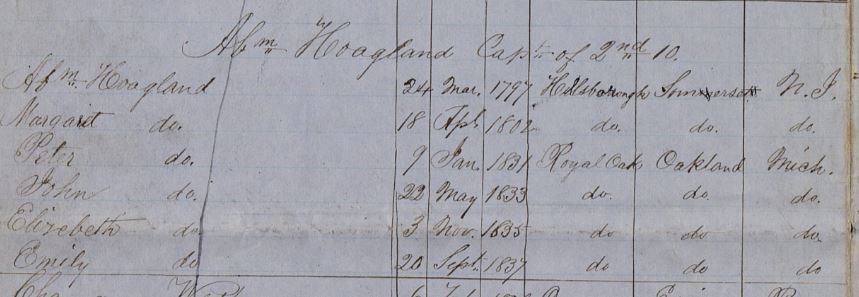 Abm Hoagland Capt. of 2nd 10.
Abm. Hoagland 24 Mar. 1797 Hillsborough Sommersett N. J.
Margaret do. 18 Apl. 1802 do. do. do.
Peter do. 9 Jan. 1831 Royal Oak Oakland Mich.
John do. 22 May 1833 do. do. do.
Elizebeth do 3 Nov. 1835 do do do.
Emily do 20 Sept. 1837 do do do